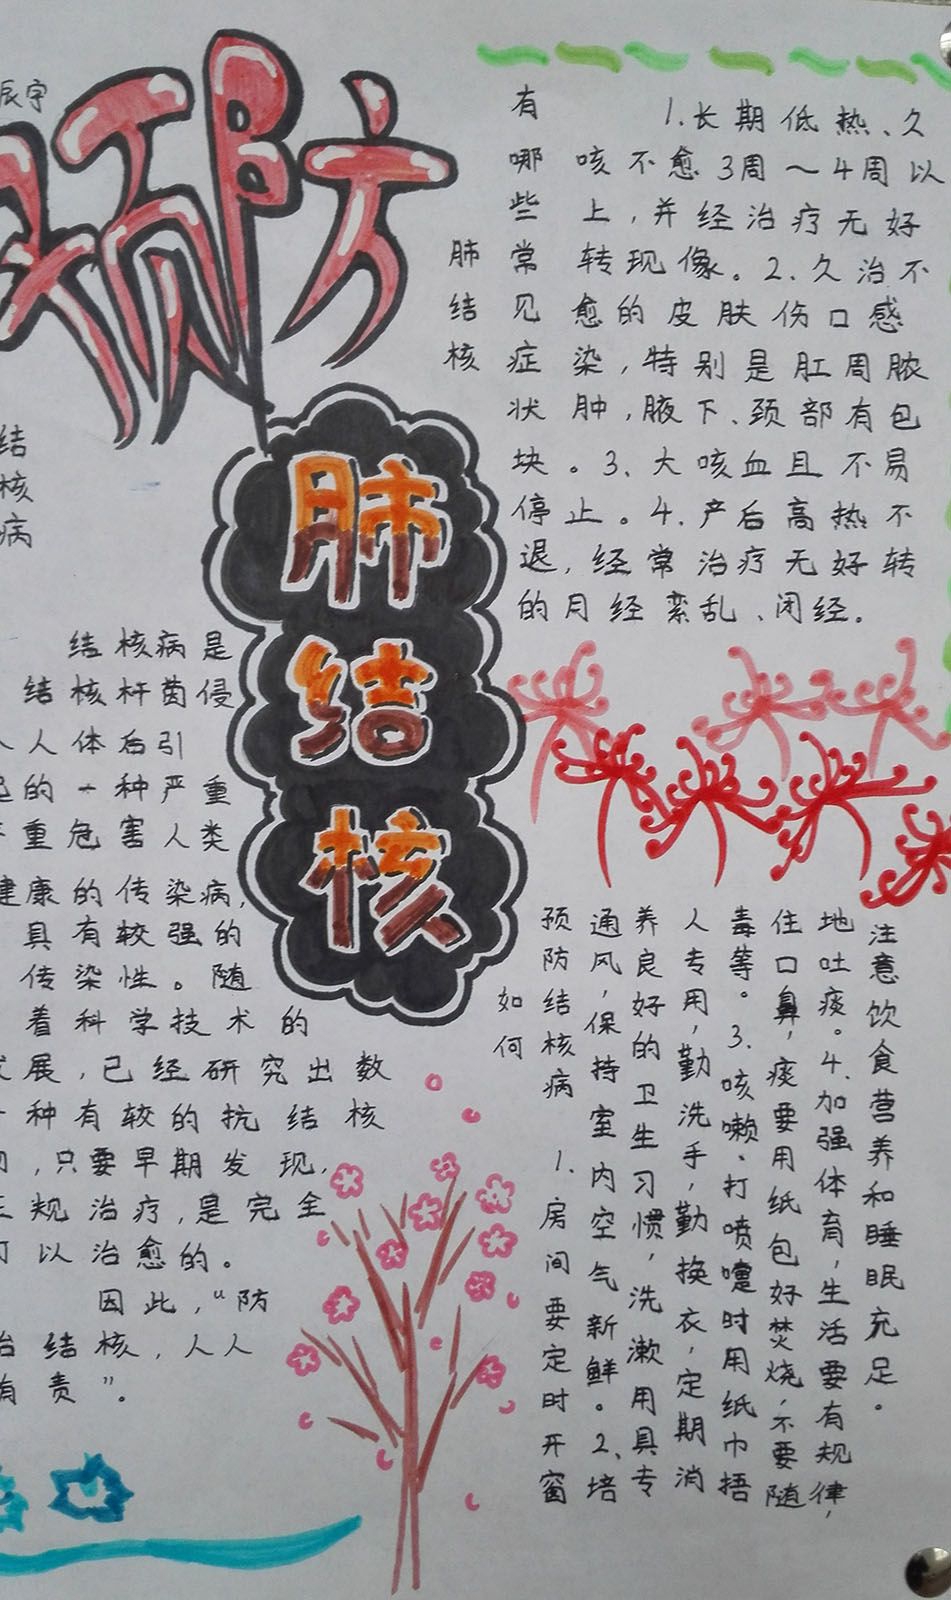 辰宇
预防
肺结核
肺结核
有哪些常见症状
1.长期低热、久
咳不愈3周～4周以
上，并经治疗无好
转现像。2、久治不
愈的皮肤伤口感
染，特别是肛周脓
肿，腋下、颈部有包
块。3、大咳血且不易
停止。4.产后高热不
退，经常治疗无好转
的月经紊乱、闭经。
结
核
病
结核病是
结核杆菌侵
人体后引
的一种严重
重危害人类
健康的传染病，
具有较强的
传染性。随
着科学技术的
发展，已经研究出数
种有较的抗结核
，只要早期发现，
规治疗，是完全
可以治愈的。
因此，“防
治结核，人人
有责”。
如何
预防结核病 1.房间要定时开窗
通风，保持室内空气新鲜。2、培
养良好的卫生习惯，洗漱用具专
人专用，勤洗手，勤换衣，定期消
毒等。3.咳嗽、打喷嚏时用纸巾捂
住口鼻，痰要用纸包好焚烧，不要随
地吐痰。4.加强体育，生活要有规律，
注意饮食营养和睡眠充足。